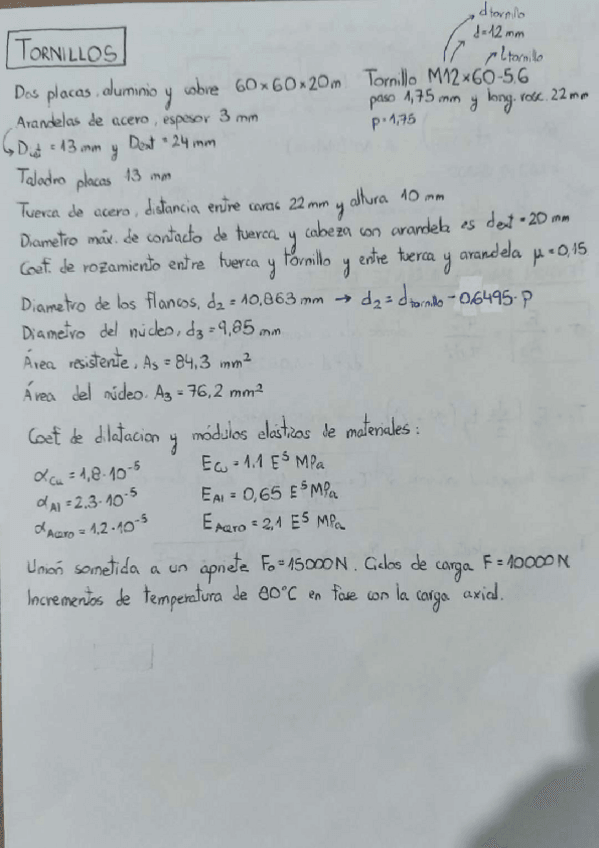 TORNILLOS
Dos placas, aluminio y cobre 60×60×20m
Arandelas de acero, espesor 3 mm
Dint = 13 mm y Dext = 24 mm
Taladro placas 13 mm
dtornillo
d=12 mm
Ltornillo
Tornillo M12×60-5.6
paso 1,75 mm y long. rosc. 22 mm
p=1,75
Tuerca de acero, distancia entre caras 22 mm y altura 10 mm
Diametro máx. de contacto de tuerca y cabeza con arandela es dext = 20 mm
Coef. de rozamiento entre tuerca y tornillo y entre tuerca y arandela μ = 0,15
Diametro de los flancos, d₂ = 10,863 mm → d₂ = dtornillo - 0,6495·p
Diametro del núcleo, d₃ = 9,85 mm
Área resistente, As = 84,3 mm²
Área del núcleo. A₃ = 76,2 mm²
Coef de dilatacion y módulos elásticos de materiales:
αCu = 1,8·10⁻⁵ ECu = 1.1 E⁵ MPa
αAl = 2,3·10⁻⁵ EAl = 0,65 E⁵ MPa
αAcero = 1,2·10⁻⁵ EAcero = 2,1 E⁵ MPa
Unión sometida a un apriete Fo = 15000N. Ciclos de carga F = 10000N
Incrementos de temperatura de 80°C en fase con la carga axial.